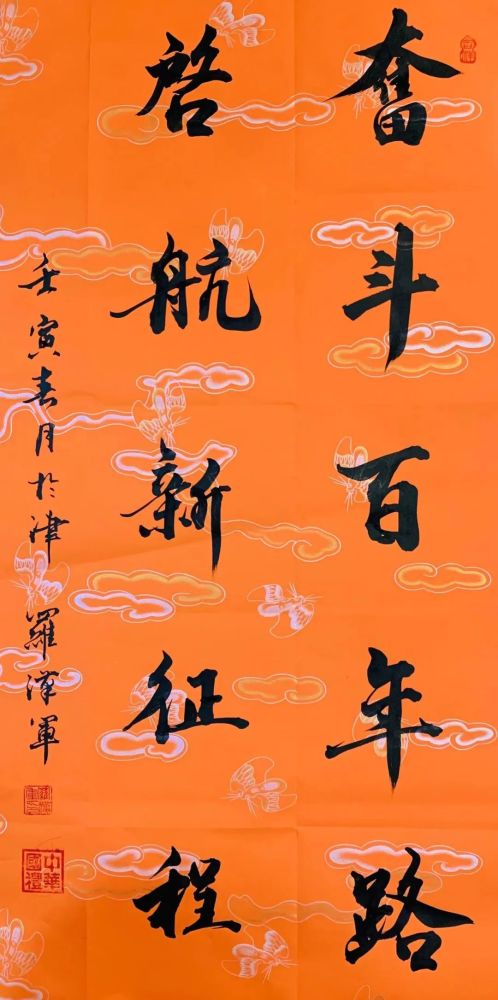 奮斗百年路
啓航新征程
壬寅春月於津 羅漢軍
中華國禮